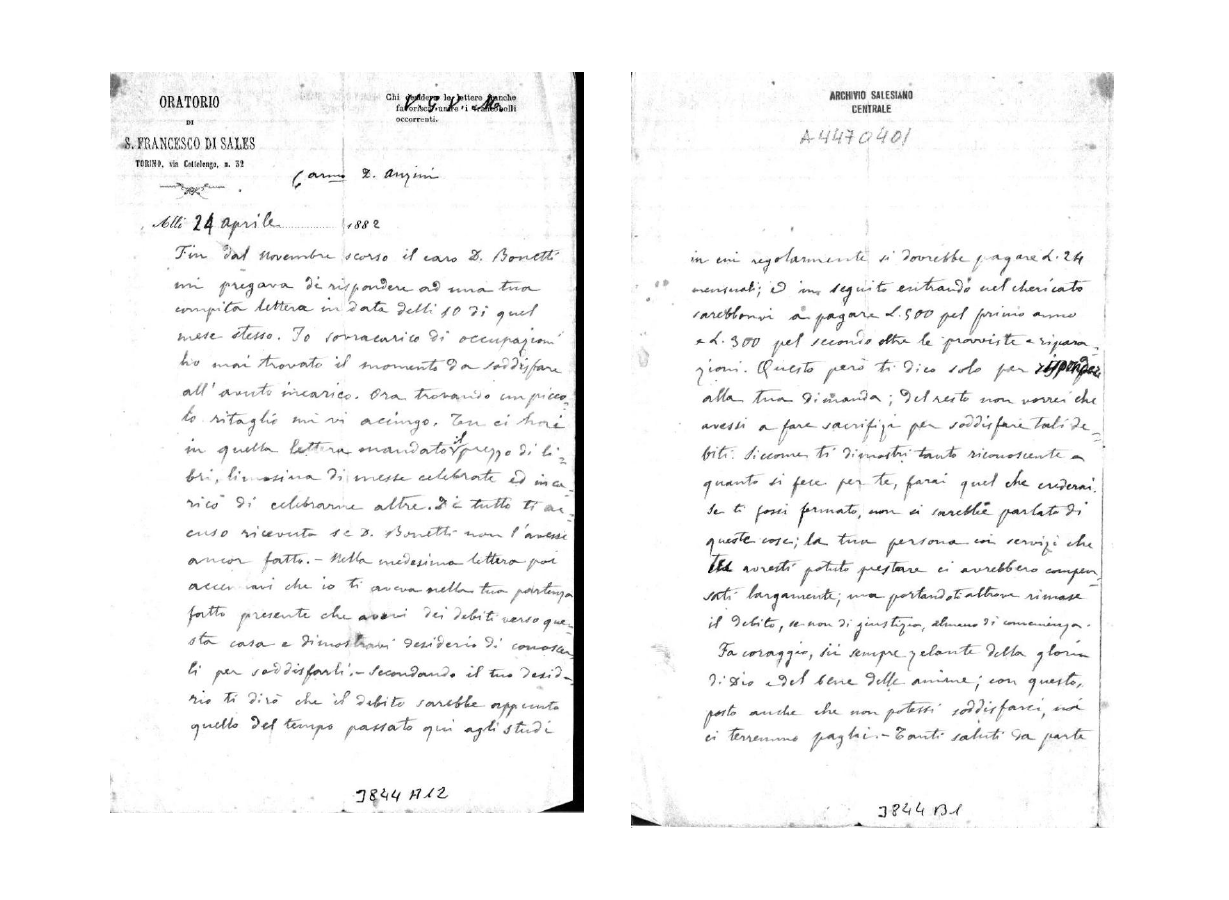 ORATORIO
DI
S. FRANCESCO DI SALES
TORINO, via Cottolengo, n. 32
Chi desidera le lettere franche
favorisca unire i francobolli
occorrenti.
V. G. V. M.
Carmo D. Anzini
Alli 24 aprile 1882
Fin dal novembre scorso il caro D. Bonetti
mi pregava di rispondere ad una tua
compita lettera in data delli 10 di quel
mese stesso. Io sovracarico di occupazioni
ho mai trovato il momento da soddisfare
all'avuto incarico. Ora trovando un picco=
lo ritaglio mi vi accingo. Tu ci hai
in quella lettera mandato il prezzo di li=
bri, limosina di messe celebrate ed inca=
rico di celebrarne altre. Di tutto ti ac=
cuso ricevuta se D. Bonetti non l'avesse
ancor fatto. - Nella medesima lettera poi
accennavi che io ti aveva nella tua partenza
fatto presente che avevi dei debiti verso que=
sta casa e dimostravi desiderio di conoscer=
li per soddisfarli. - Secondando il tuo deside=
rio ti dirò che il debito sarebbe appunto
quello del tempo passato qui agli studi
J844 A12
ARCHIVIO SALESIANO
CENTRALE
A4470401
in cui regolarmente si dovrebbe pagare L. 24
mensuali; ed in seguito entrando nel chericato
sarebbonvi a pagare L. 500 pel primo anno
e L. 300 pel secondo oltre le provviste e ripara=
zioni. Questo però ti dico solo per rispondere
alla tua dimanda; del resto non vorrei che
avessi a fare sacrifizi per soddisfare tali de=
biti. Siccome ti dimostri tanto riconoscente a
quanto si fece per te, farai quel che crederai.
Se ti fossi fermato, non si sarebbe parlato di
queste cose; la tua persona coi servizi che
avresti potuto prestare ci avrebbero compen=
sati largamente; ma portandoti altrove rimase
il debito, se non di giustizia, almeno di convenienza.
Fa coraggio, sii sempre zelante della gloria
di Dio e del bene delle anime; con questo,
posto anche che non potessi soddisfarci, noi
ci terremmo paghi. - Tanti saluti da parte
J844 B1